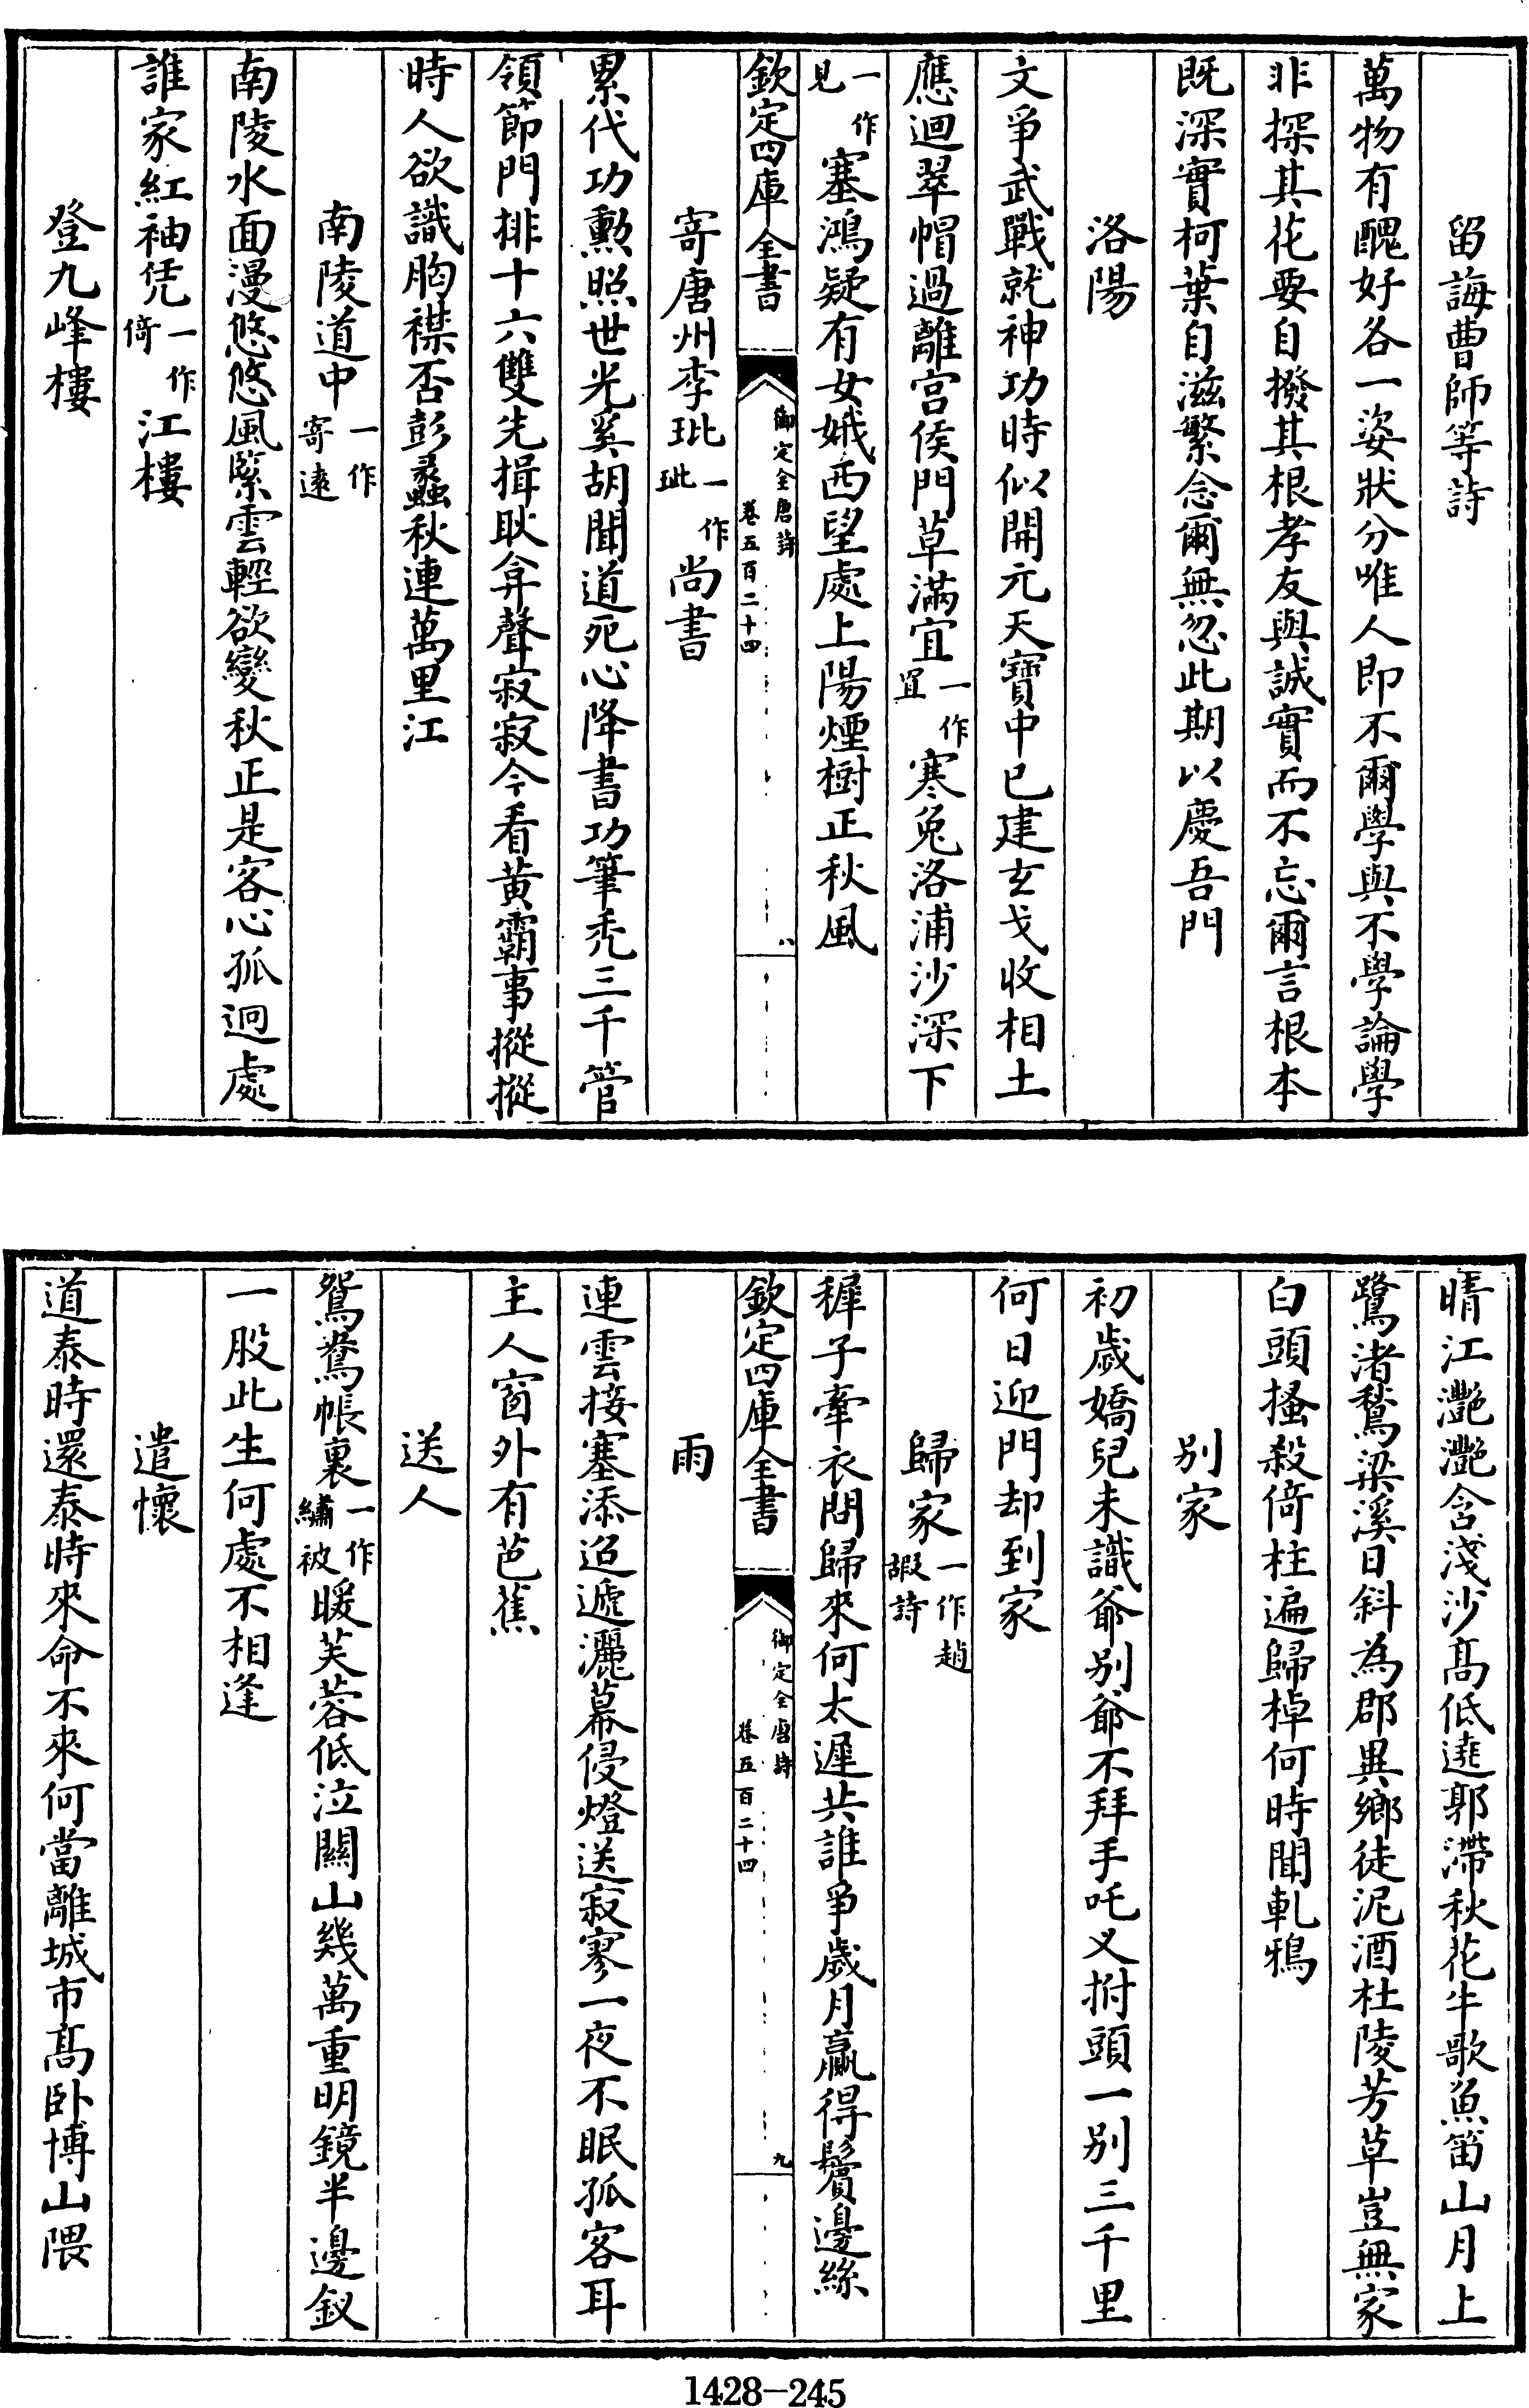 留誨曹師等詩
萬物有醜好各一姿狀分唯人即不爾學與不學論學
非探其花要自撥其根孝友與誠實而不忘爾言根本
既深實柯葉自滋繁念爾無忽此期以慶吾門
洛陽
文爭武戰就神功時似開元天寶中已建玄戈收相土
應迴翠帽過離宮侯門草滿宜一作冝寒兔洛浦沙深下
一作見塞鴻疑有女娥西望處上陽煙樹正秋風
欽定四庫全書 御定全唐詩 卷五百二十四 八
寄唐州李玭一作玼尚書
累代功勲照世光奚胡聞道死心降書功筆禿三千管
領節門排十六雙先揖耿弇聲寂寂今看黃霸事摐摐
時人欲識胸襟否彭蠡秋連萬里江
南陵道中一作寄遠
南陵水面漫悠悠風緊雲輕欲變秋正是客心孤迥處
誰家紅袖凭一作倚江樓
登九峰樓
晴江灧灧含淺沙高低遶郭滯秋花牛歌魚笛山月上
鷺渚鶖梁溪日斜為郡異鄉徒泥酒杜陵芳草豈無家
白頭搔殺倚柱遍歸棹何時聞軋鴉
别家
初歲嬌兒未識爺别爺不拜手吒义拊頭一别三千里
何日迎門却到家
歸家一作趙嘏詩
穉子牽衣問歸來何太遲共誰爭歲月贏得鬢邊絲
欽定四庫全書 御定全唐詩 卷五百二十四 九
雨
連雲接塞添迢遞灑幕侵燈送寂寥一夜不眠孤客耳
主人窗外有芭蕉
送人
鴛鴦帳裏一作繡被暖芙蓉低泣關山幾萬重明鏡半邊釵
一股此生何處不相逢
遣懷
道泰時還泰時來命不來何當離城市高卧博山隈
1428-245